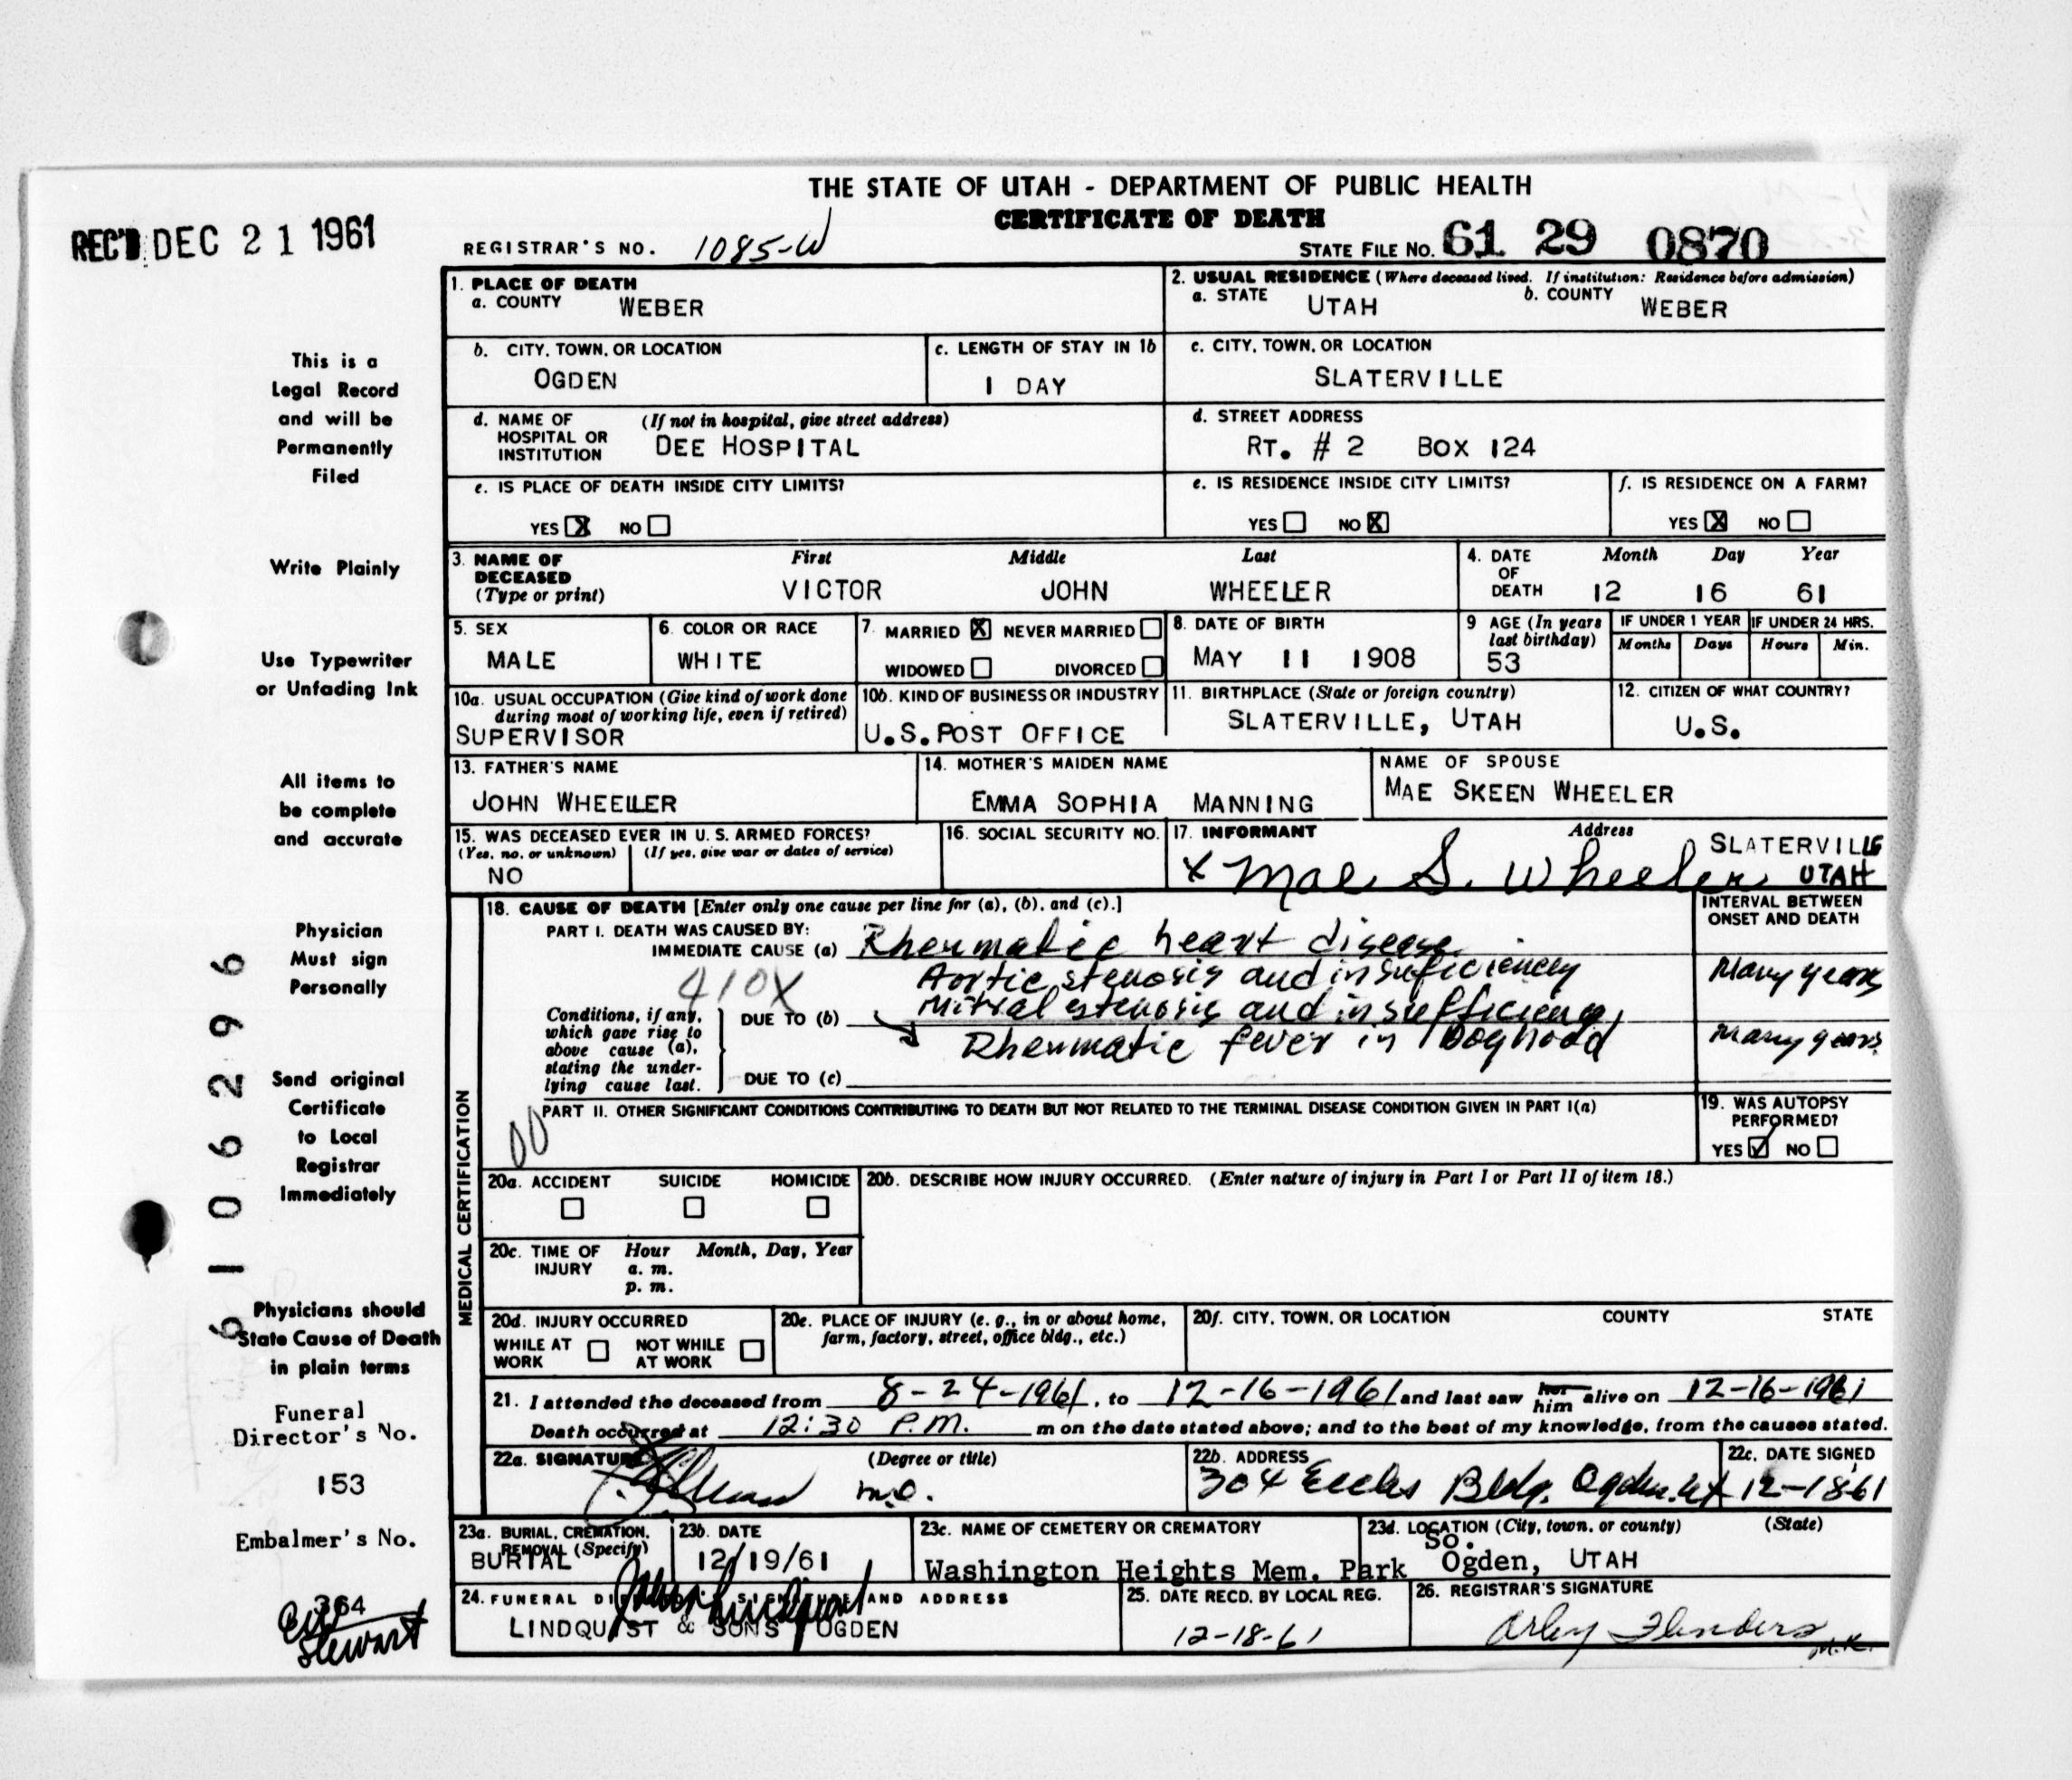 THE STATE OF UTAH - DEPARTMENT OF PUBLIC HEALTH
CERTIFICATE OF DEATH
REC'D DEC 21 1961
REGISTRAR'S NO. 1085-W
STATE FILE NO. 61 29 0870
1. PLACE OF DEATH
a. COUNTY WEBER
2. USUAL RESIDENCE (Where deceased lived. If institution: Residence before admission)
a. STATE UTAH b. COUNTY WEBER
b. CITY, TOWN, OR LOCATION
OGDEN
c. LENGTH OF STAY IN 1b
1 DAY
c. CITY, TOWN, OR LOCATION
SLATERVILLE
d. NAME OF HOSPITAL OR INSTITUTION (If not in hospital, give street address)
DEE HOSPITAL
d. STREET ADDRESS
RT. # 2 BOX 124
e. IS PLACE OF DEATH INSIDE CITY LIMITS?
YES X NO
e. IS RESIDENCE INSIDE CITY LIMITS?
YES NO X
f. IS RESIDENCE ON A FARM?
YES X NO
3. NAME OF DECEASED (Type or print)
First Middle Last
VICTOR JOHN WHEELER
4. DATE OF DEATH
Month Day Year
12 16 61
5. SEX
MALE
6. COLOR OR RACE
WHITE
7. MARRIED X NEVER MARRIED
WIDOWED DIVORCED
8. DATE OF BIRTH
MAY 11 1908
9 AGE (In years last birthday)
53
IF UNDER 1 YEAR
Months Days
IF UNDER 24 HRS.
Hours Min.
10a. USUAL OCCUPATION (Give kind of work done during most of working life, even if retired)
SUPERVISOR
10b. KIND OF BUSINESS OR INDUSTRY
U.S. POST OFFICE
11. BIRTHPLACE (State or foreign country)
SLATERVILLE, UTAH
12. CITIZEN OF WHAT COUNTRY?
U.S.
13. FATHER'S NAME
JOHN WHEELER
14. MOTHER'S MAIDEN NAME
EMMA SOPHIA MANNING
NAME OF SPOUSE
MAE SKEEN WHEELER
15. WAS DECEASED EVER IN U.S. ARMED FORCES?
(Yes, no, or unknown) (If yes, give war or dates of service)
NO
16. SOCIAL SECURITY NO.
17. INFORMANT Address
x Mae S. Wheeler SLATERVILLE UTAH
MEDICAL CERTIFICATION
18. CAUSE OF DEATH [Enter only one cause per line for (a), (b), and (c).]
INTERVAL BETWEEN ONSET AND DEATH
PART I. DEATH WAS CAUSED BY:
IMMEDIATE CAUSE (a) Rheumatic heart disease
Aortic stenosis and insuficiencey Many years
410X
Mitral stenosis and insufficiency
Conditions, if any, which gave rise to above cause (a), stating the underlying cause last.
DUE TO (b)
Rheumatic fever in boyhood Many years
DUE TO (c)
PART II. OTHER SIGNIFICANT CONDITIONS CONTRIBUTING TO DEATH BUT NOT RELATED TO THE TERMINAL DISEASE CONDITION GIVEN IN PART I(a)
00
19. WAS AUTOPSY PERFORMED?
YES ✓ NO
20a. ACCIDENT SUICIDE HOMICIDE
20b. DESCRIBE HOW INJURY OCCURRED. (Enter nature of injury in Part I or Part II of item 18.)
20c. TIME OF INJURY Hour Month, Day, Year
a. m.
p. m.
20d. INJURY OCCURRED
WHILE AT WORK NOT WHILE AT WORK
20e. PLACE OF INJURY (e. g., in or about home, farm, factory, street, office bldg., etc.)
20f. CITY, TOWN, OR LOCATION COUNTY STATE
21. I attended the deceased from 8-24-1961, to 12-16-1961 and last saw her him alive on 12-16-1961
Death occurred at 12:30 P.M. m on the date stated above; and to the best of my knowledge, from the causes stated.
22a. SIGNATURE (Degree or title)
M.D.
22b. ADDRESS
304 Eccles Bldg. Ogden. Ut
22c. DATE SIGNED
12-18-61
23a. BURIAL, CREMATION, REMOVAL (Specify)
BURIAL
23b. DATE
12/19/61
23c. NAME OF CEMETERY OR CREMATORY
Washington Heights Mem. Park
23d. LOCATION (City, town, or county) (State)
So. Ogden, UTAH
24. FUNERAL DIRECTOR'S SIGNATURE AND ADDRESS
LINDQUIST & SONS OGDEN
25. DATE RECD. BY LOCAL REG.
12-18-61
26. REGISTRAR'S SIGNATURE
Arley Flinders
M.K.
This is a
Legal Record
and will be
Permanently
Filed
Write Plainly
Use Typewriter
or Unfading Ink
All items to
be complete
and accurate
Physician
Must sign
Personally
Send original
Certificate
to Local
Registrar
Immediately
Physicians should
State Cause of Death
in plain terms
Funeral
Director's No.
153
Embalmer's No.
364
Stewart
6106296